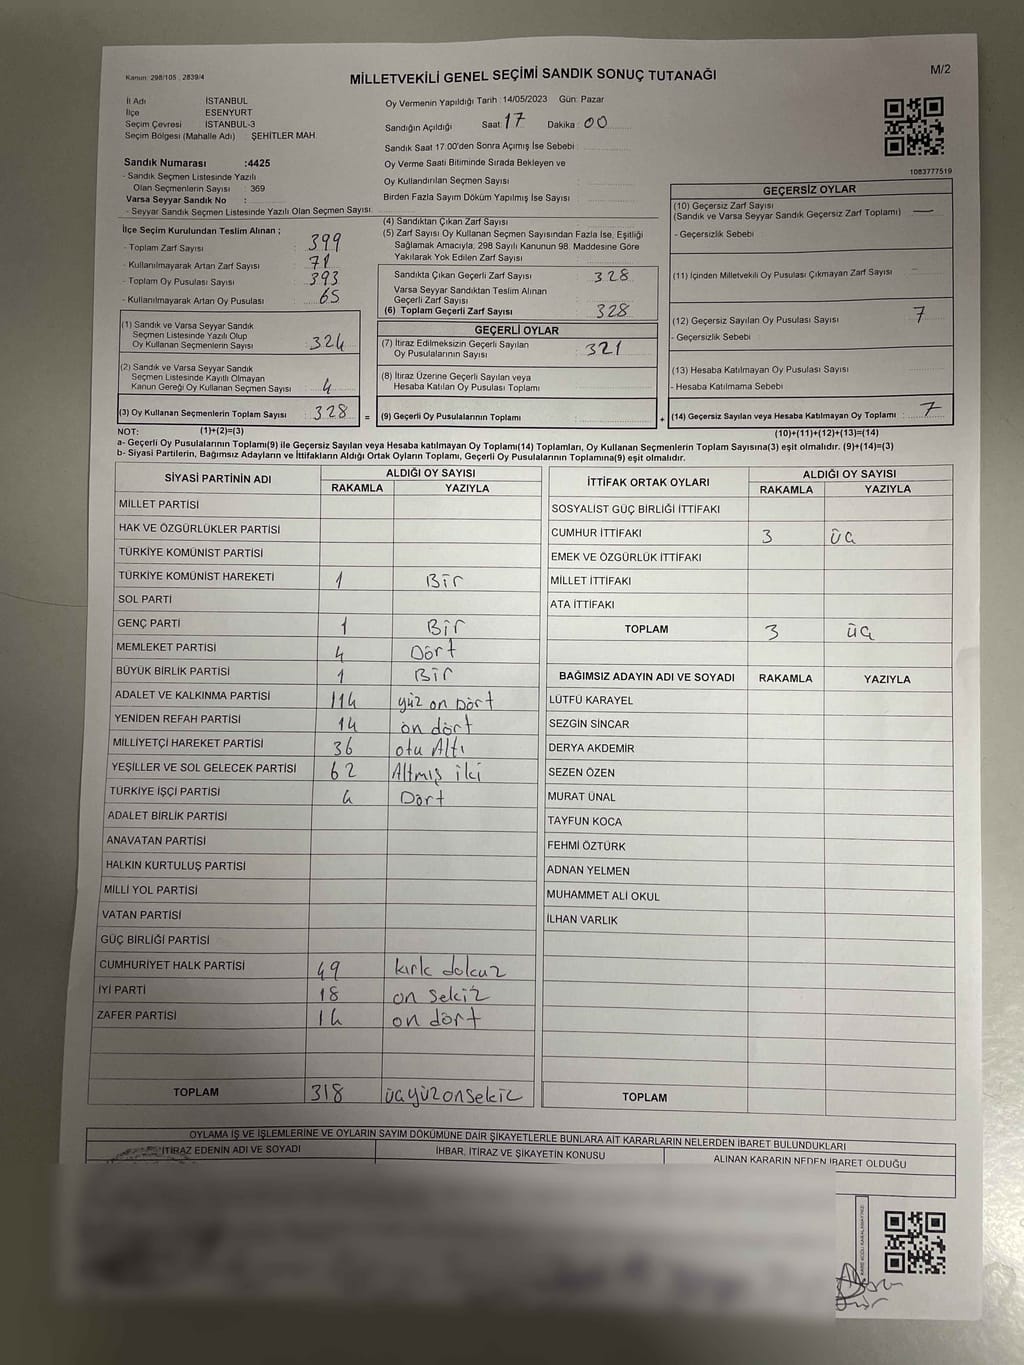 Kanun: 298/105 , 2839/4
MİLLETVEKİLİ GENEL SEÇİMİ SANDIK SONUÇ TUTANAĞI
M/2
İl Adı İSTANBUL
İlçe ESENYURT
Seçim Çevresi İSTANBUL-3
Seçim Bölgesi (Mahalle Adı) ŞEHİTLER MAH.
Oy Vermenin Yapıldığı Tarih : 14/05/2023 Gün: Pazar
Sandığın Açıldığı Saat 17 Dakika : 00
Sandık Saat 17:00'den Sonra Açımış İse Sebebi
Oy Verme Saati Bitiminde Sırada Bekleyen ve
Oy Kullandırılan Seçmen Sayısı
Birden Fazla Sayım Döküm Yapılmış İse Sayısı
1083777519
Sandık Numarası :4425
- Sandık Seçmen Listesinde Yazılı
Olan Seçmenlerin Sayısı : 369
Varsa Seyyar Sandık No :
- Seyyar Sandık Seçmen Listesinde Yazılı Olan Seçmen Sayısı:
İlçe Seçim Kurulundan Teslim Alınan ;
- Toplam Zarf Sayısı 399
- Kullanılmayarak Artan Zarf Sayısı 71
- Toplam Oy Pusulası Sayısı 393
- Kullanılmayarak Artan Oy Pusulası 65
(1) Sandık ve Varsa Seyyar Sandık
Seçmen Listesinde Yazılı Olup
Oy Kullanan Seçmenlerin Sayısı 324
(2) Sandık ve Varsa Seyyar Sandık
Seçmen Listesinde Kayıtlı Olmayan
Kanun Gereği Oy Kullanan Seçmen Sayısı 4
(3) Oy Kullanan Seçmenlerin Toplam Sayısı 328 =
(4) Sandıktan Çıkan Zarf Sayısı
(5) Zarf Sayısı Oy Kullanan Seçmen Sayısından Fazla İse, Eşitliği
Sağlamak Amacıyla; 298 Sayılı Kanunun 98. Maddesine Göre
Yakılarak Yok Edilen Zarf Sayısı
Sandıkta Çıkan Geçerli Zarf Sayısı 328
Varsa Seyyar Sandıktan Teslim Alınan
Geçerli Zarf Sayısı
(6) Toplam Geçerli Zarf Sayısı 328
GEÇERLİ OYLAR
(7) İtiraz Edilmeksizin Geçerli Sayılan
Oy Pusulalarının Sayısı : 321
(8) İtiraz Üzerine Geçerli Sayılan veya
Hesaba Katılan Oy Pusulası Toplamı
(9) Geçerli Oy Pusulalarının Toplamı +
GEÇERSİZ OYLAR
(10) Geçersiz Zarf Sayısı
(Sandık ve Varsa Seyyar Sandık Geçersiz Zarf Toplamı) —
- Geçersizlik Sebebi
(11) İçinden Milletvekili Oy Pusulası Çıkmayan Zarf Sayısı
(12) Geçersiz Sayılan Oy Pusulası Sayısı 7
- Geçersizlik Sebebi
(13) Hesaba Katılmayan Oy Pusulası Sayısı
- Hesaba Katılmama Sebebi
(14) Geçersiz Sayılan veya Hesaba Katılmayan Oy Toplamı 7
NOT: (1)+(2)=(3) (10)+(11)+(12)+(13)=(14)
a- Geçerli Oy Pusulalarının Toplamı(9) ile Geçersiz Sayılan veya Hesaba katılmayan Oy Toplamı(14) Toplamları, Oy Kullanan Seçmenlerin Toplam Sayısına(3) eşit olmalıdır. (9)+(14)=(3)
b- Siyasi Partilerin, Bağımsız Adayların ve İttifakların Aldığı Ortak Oyların Toplamı, Geçerli Oy Pusulalarının Toplamına(9) eşit olmalıdır.
SİYASİ PARTİNİN ADI ALDIĞI OY SAYISI
RAKAMLA YAZIYLA
MİLLET PARTİSİ
HAK VE ÖZGÜRLÜKLER PARTİSİ
TÜRKİYE KOMÜNİST PARTİSİ
TÜRKİYE KOMÜNİST HAREKETİ 1 Bir
SOL PARTİ
GENÇ PARTİ 1 Bir
MEMLEKET PARTİSİ 4 Dört
BÜYÜK BİRLİK PARTİSİ 1 Bir
ADALET VE KALKINMA PARTİSİ 114 yüz on Dört
YENİDEN REFAH PARTİSİ 14 on dört
MİLLİYETÇİ HAREKET PARTİSİ 36 otu Altı
YEŞİLLER VE SOL GELECEK PARTİSİ 62 Altmış iki
TÜRKİYE İŞÇİ PARTİSİ 4 Dört
ADALET BİRLİK PARTİSİ
ANAVATAN PARTİSİ
HALKIN KURTULUŞ PARTİSİ
MİLLİ YOL PARTİSİ
VATAN PARTİSİ
GÜÇ BİRLİĞİ PARTİSİ
CUMHURİYET HALK PARTİSİ 49 kırk dokuz
İYİ PARTİ 18 on sekiz
ZAFER PARTİSİ 14 on dört
TOPLAM 318 üçyüzonsekiz
İTTİFAK ORTAK OYLARI ALDIĞI OY SAYISI
RAKAMLA YAZIYLA
SOSYALİST GÜÇ BİRLİĞİ İTTİFAKI
CUMHUR İTTİFAKI 3 üç
EMEK VE ÖZGÜRLÜK İTTİFAKI
MİLLET İTTİFAKI
ATA İTTİFAKI
TOPLAM 3 üç
BAĞIMSIZ ADAYIN ADI VE SOYADI RAKAMLA YAZIYLA
LÜTFÜ KARAYEL
SEZGİN SİNCAR
DERYA AKDEMİR
SEZEN ÖZEN
MURAT ÜNAL
TAYFUN KOCA
FEHMİ ÖZTÜRK
ADNAN YELMEN
MUHAMMET ALİ OKUL
İLHAN VARLIK
TOPLAM
OYLAMA İŞ VE İŞLEMLERİNE VE OYLARIN SAYIM DÖKÜMÜNE DAİR ŞİKAYETLERLE BUNLARA AİT KARARLARIN NELERDEN İBARET BULUNDUKLARI
İTİRAZ EDENİN ADI VE SOYADI İHBAR, İTİRAZ VE ŞİKAYETİN KONUSU ALINAN KARARIN NEDEN İBARET OLDUĞU